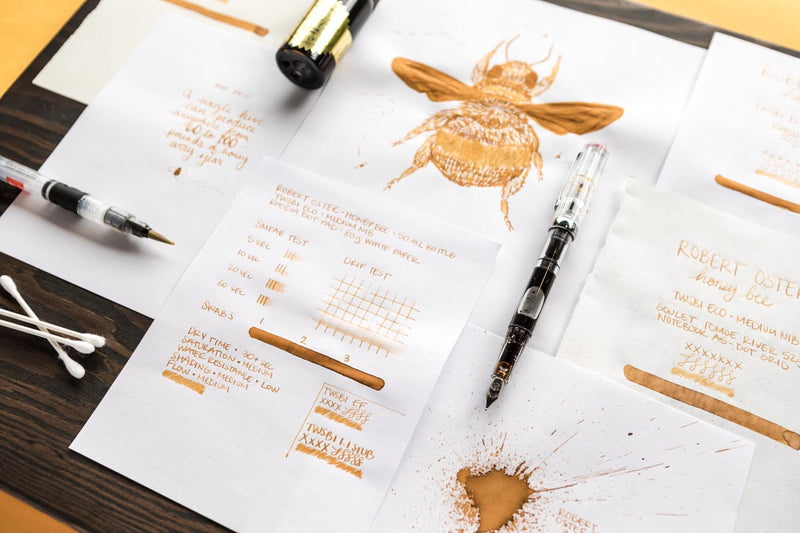 a single hive
can produce
anywhere from
60 to 100
pounds of honey
every year
ROBERT OSTER • HONEY BEE • 50 ML BOTTLE
TWSBI ECO • MEDIUM NIB
RHODIA DOT PAD • 80g WHITE PAPER
SMEAR TEST
5 SEC
10 SEC
20 SEC
30 SEC
DRIP TEST
SWABS
1
2
3
DRY TIME • 30+ SEC
SATURATION • MEDIUM
WATER RESISTANCE • LOW
SHADING • MEDIUM
FLOW • MEDIUM
TWSBI EF
XXXX
TWSBI 1.1 STUB
XXXX
ROBERT OSTER
honey bee
TWSBI ECO • MEDIUM NIB
GOULET TOMOE RIVER 52
NOTEBOOK A5 • DOT GRID
XXXXXXX
ROBERT
OSTER